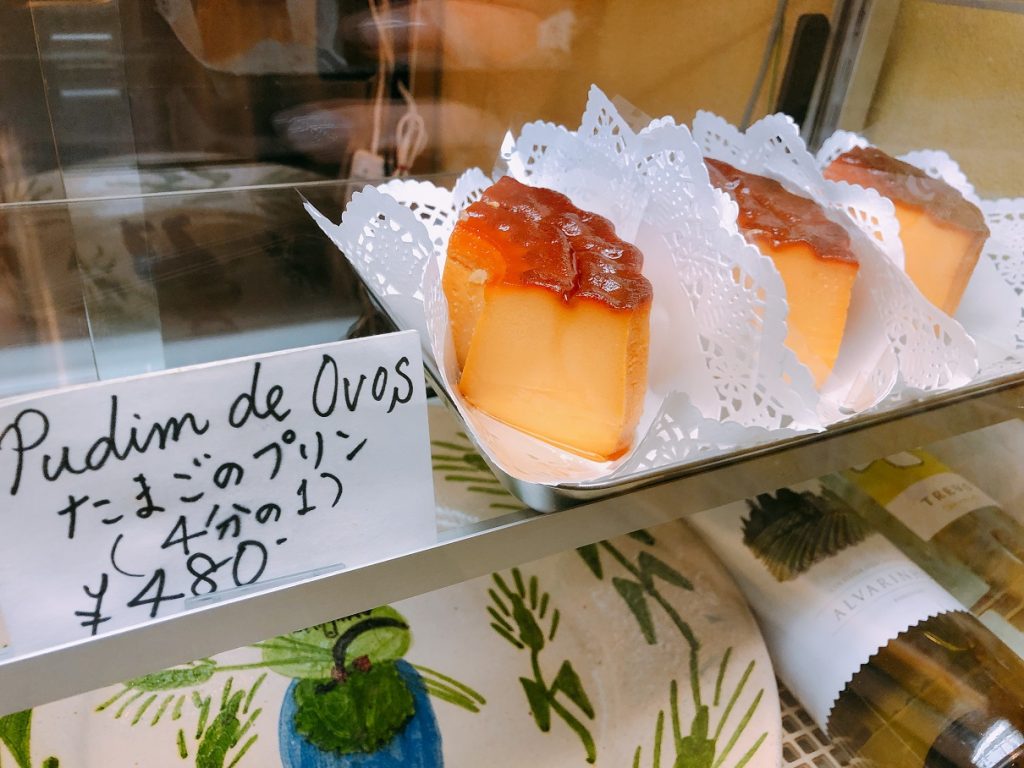 Pudim de Ovos
たまごのプリン
(4分の1)
¥480-
TRE
ALVARIN